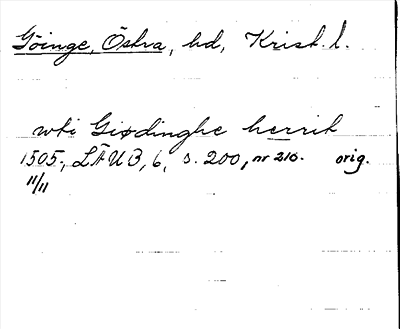 Göinge, Östra, hd, Krist. l.
wti Giødinghe herrit
1505, LÄUB, 6, s. 200, nr 210. orig.
11/11